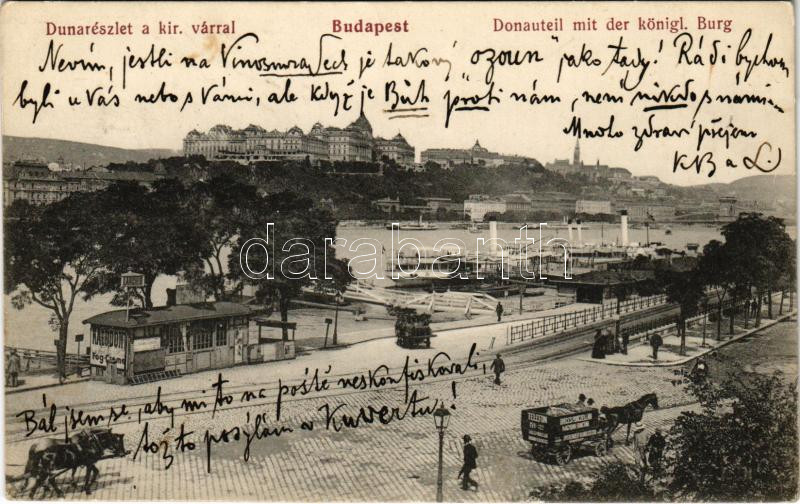 Dunarészlet a kir. várral Budapest Donauteil mit der königl. Burg
Nevím, jestli na Vinosmora Sech je takový "ozoun" jako tady! Rádi bychom
byli u Vás nebo s Vámi, ale když je Bůh "proti nám, není nikdo s námi"
Mnoho zdraví přejem
KB a L.
darabanth
Bál jsem se, aby mi to na poště neskonfiskovali,
to posýlám v Kuvertu!